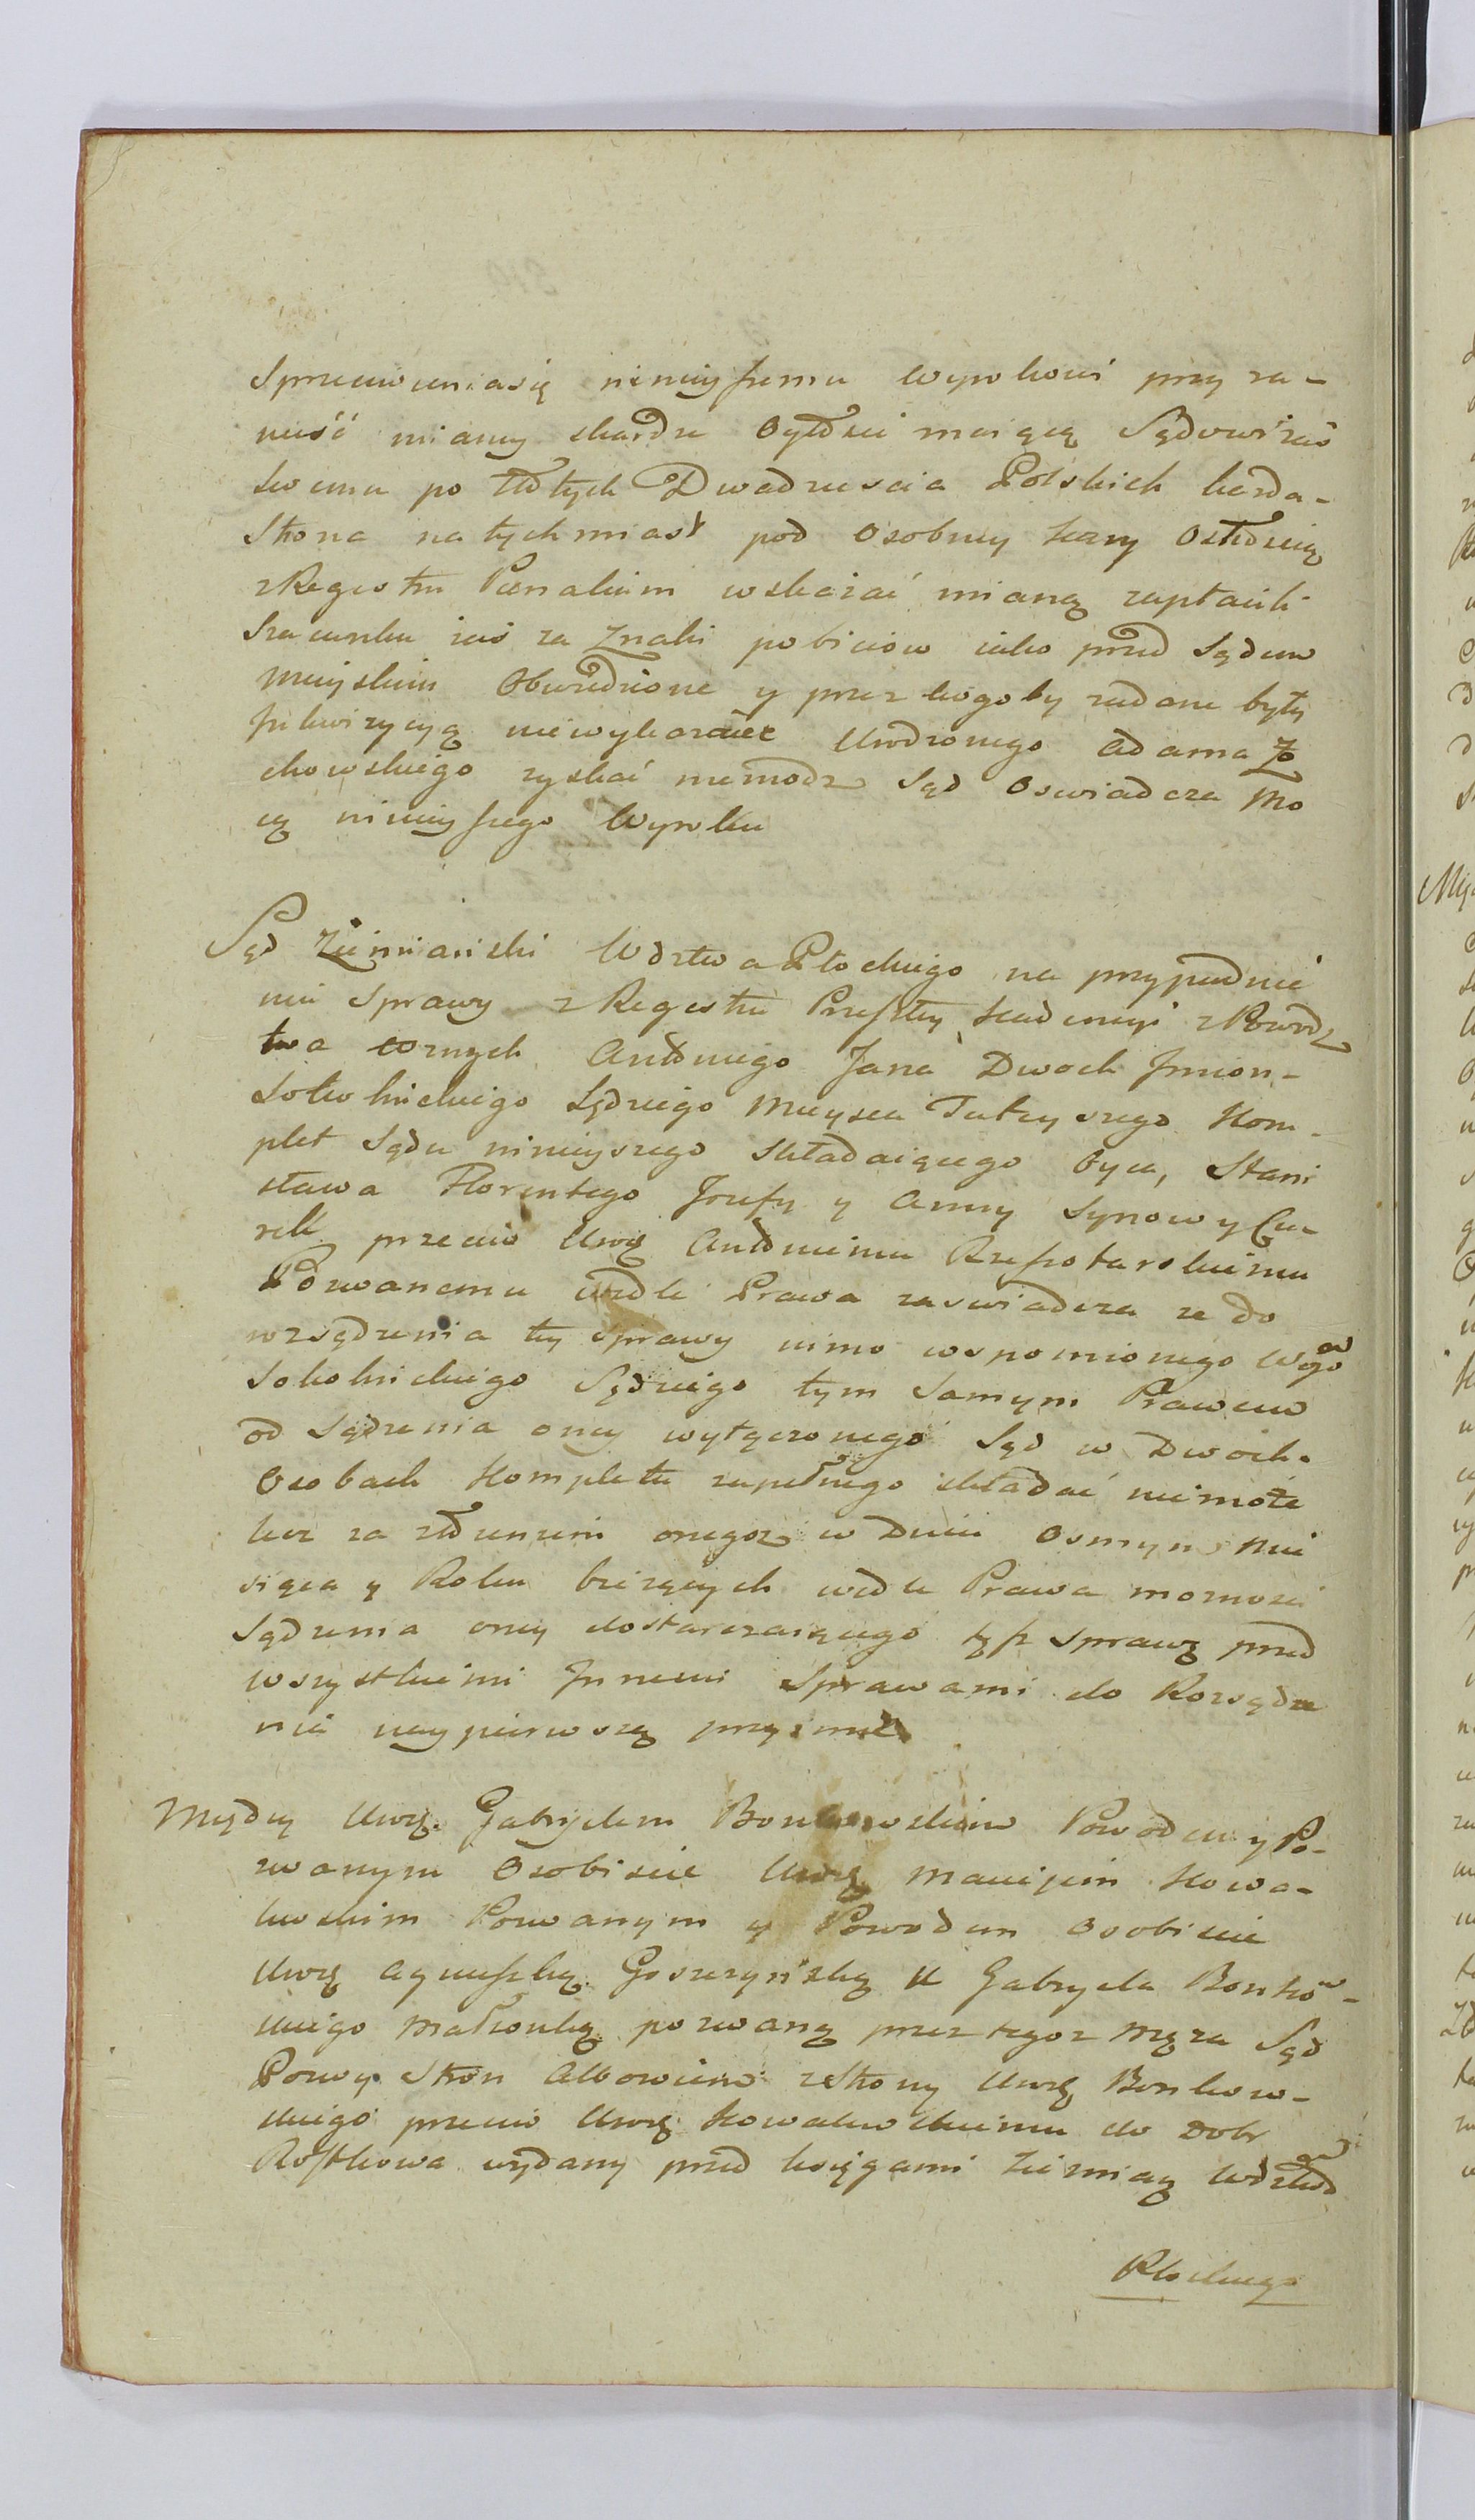 Sprzeciwieniasię ninieyszemu Wyrokowi przy za-
ność miany skardze Sądowi zaś
swemu po Złotych Dwadziescia Polskich każda-
Strona natychmiast pod Osobney kary
z Regestru Poenalium wskazać mianą zapłacili
Szacunku zaś za Znaki pobiciow iako przed Sądem
Mieyskim Obwiedzione y przez kogo by zadane były
niewykazane Urodzonego Adama Zo
chowskiego zyskać niemodz Sąd Oswiadcza Mo
cą ninieyszego Wyroku
Sąd Ziemiański Wdztwa Płockiego na przypadnie
nie Sprawy z Regestru Przeszłey Kadencyi z Powodz
twa Wznych Antoniego Jana Dwoch Jmion-
Sokolnickiego Sędziego Mieysca Tuteyszego Kom-
plet Sądu ninieyszego Składaiącego Oyca, Stani
sława Florentego Jozefy y Anny Synow y Cu-
rek przeciw Urod. Antoniemu Rzeszotarskiemu
Pozwanemu wedle Prawa zaswiadcza ze do
rozsądzenia tey Sprawy mimo wspomnionego Wgo
Sokolnickiego Sędziego tym Samym Prawem
od Sądzenia oney wyłączonego Sąd w Dwoch
Osobach Kompletu zupełnego składać niemoże
lecz za złożeniem onegoz w Dniu Osmym Mie
siąca y Roku bieżących wedle Prawa moznosci
Sądzenia oney dostarczaiącego tęz Sprawę przed
wszystkiemi Jnnemi Sprawami do Rozsądze
nia naypierwszą przyimie
Między Urod. Gabryelem Bonkowskim Powodem y Po-
zwanym Osobiscie Urod. Maciejem Kowa-
lewskim Pozwanym y Powodem Osobiscie
Urod. Agnieszką Goszczyńską Gabryela Bonkow-
skiego Małżonką pozwaną przez tegoz Męża Sąd
Pozwy Stron Albowiem z Strony Urod. Bonkow-
skiego przeciw Urod. Kowalewskiemu do Dobr
Rostkowa wydany przed księgami Ziemian Wdztwa
Płockiego